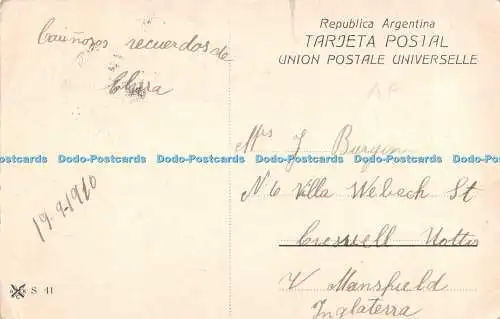 Republica Argentina
TARJETA POSTAL
UNION POSTALE UNIVERSELLE
Cariñozos recuerdos de
Clara
Mrs J Burgin
Dodo-Postcards Dodo-Postcards Dodo-Postcards Dodo-Postcards Dodo-Postcards Dodo-Postcards
N 6 Villa Webech St
19-9-1910
Creswell Notts
V Mansfield
Inglaterra
S. 41